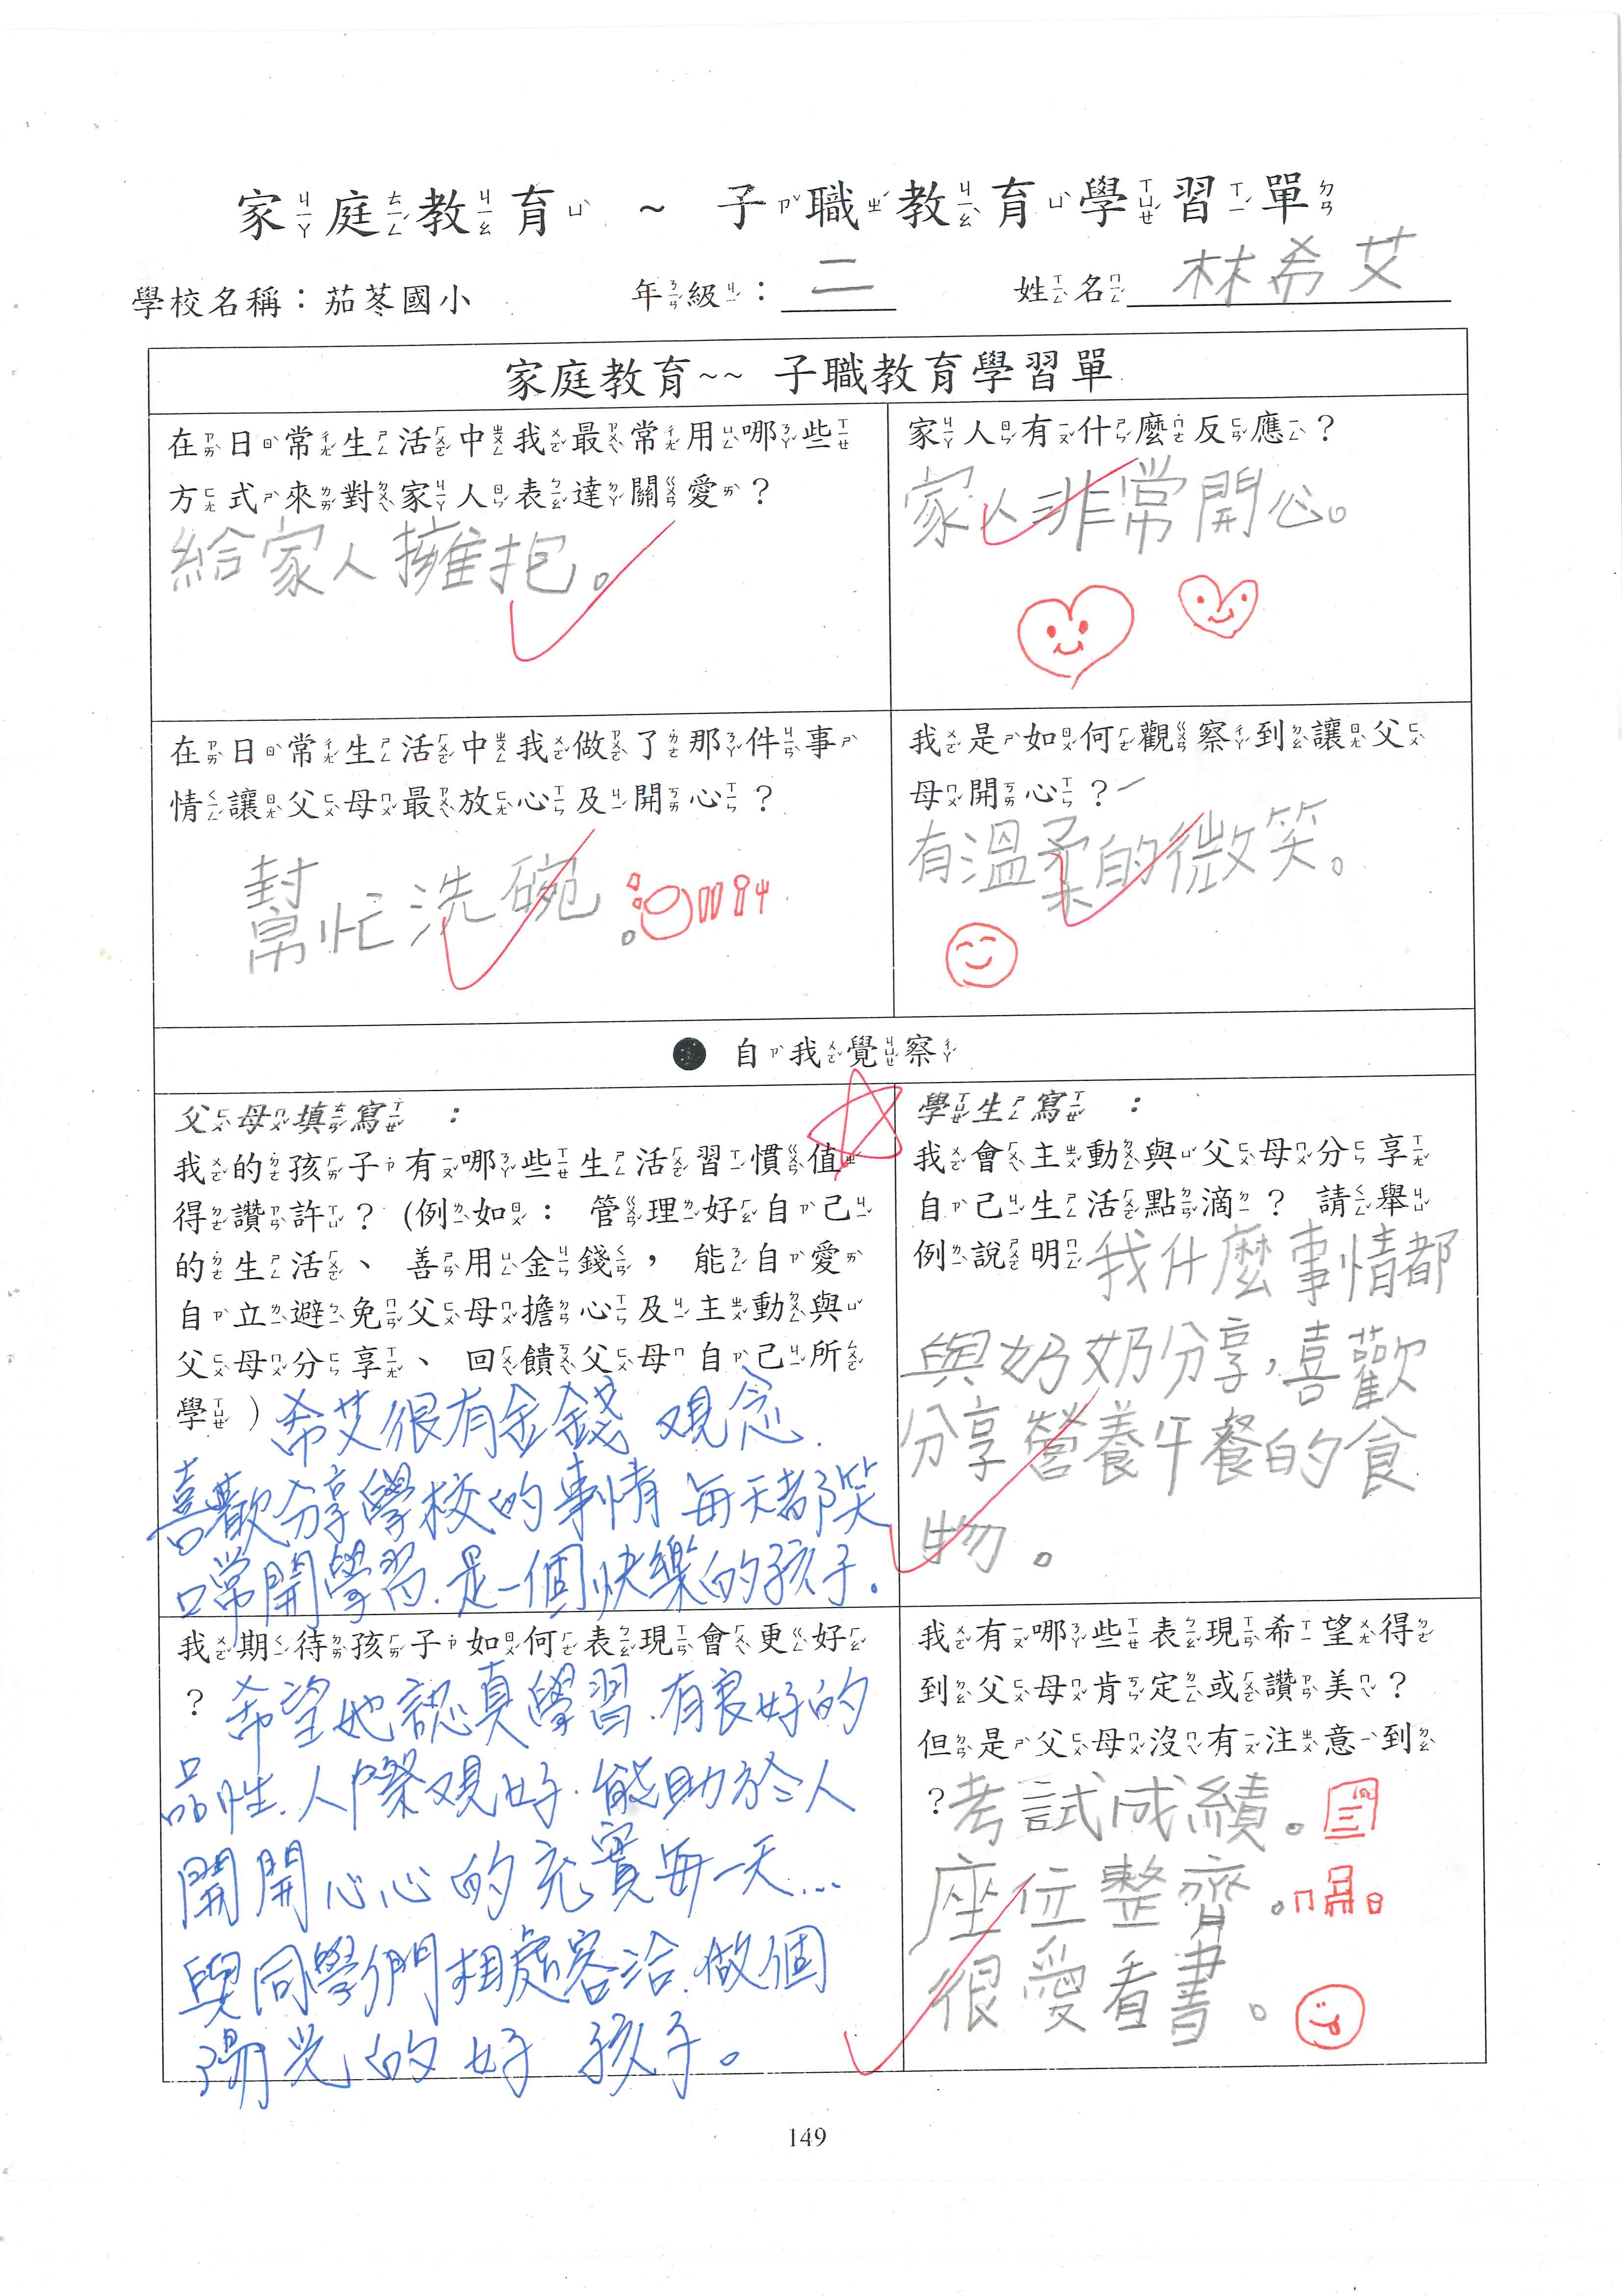 家庭教育 ~ 子職教育學習單
學校名稱：茄苳國小 年級：二 姓名 林希艾
家庭教育~~ 子職教育學習單
在日常生活中我最常用哪些
方式來對家人表達關愛？
給家人擁抱。
家人有什麼反應？
家人非常開心。
在日常生活中我做了那件事
情讓父母最放心及開心？
幫忙洗碗。
我是如何觀察到讓父
母開心？
有溫柔的微笑。
● 自我覺察
父母填寫：
我的孩子有哪些生活習慣值
得讚許？(例如： 管理好自己
的生活、 善用金錢， 能自愛
自立避免父母擔心及主動與
父母分享、 回饋父母自己所
學) 希艾很有金錢觀念.
喜歡分享學校的事情 每天都笑
口常開學習.是一個快樂的孩子。
學生寫：
我會主動與父母分享
自己生活點滴？ 請舉
例說明 我什麼事情都
與奶奶分享,喜歡
分享營養午餐的食
物。
我期待孩子如何表現會更好
？ 希望她認真學習.有良好的
品性.人際観好.能助於人
開開心心的充實每一天...
與同學們相處容洽.做個
陽光的好孩子。
我有哪些表現希望得
到父母肯定或讚美？
但是父母沒有注意到
？考試成績。
座位整齊。
很愛看書。
149